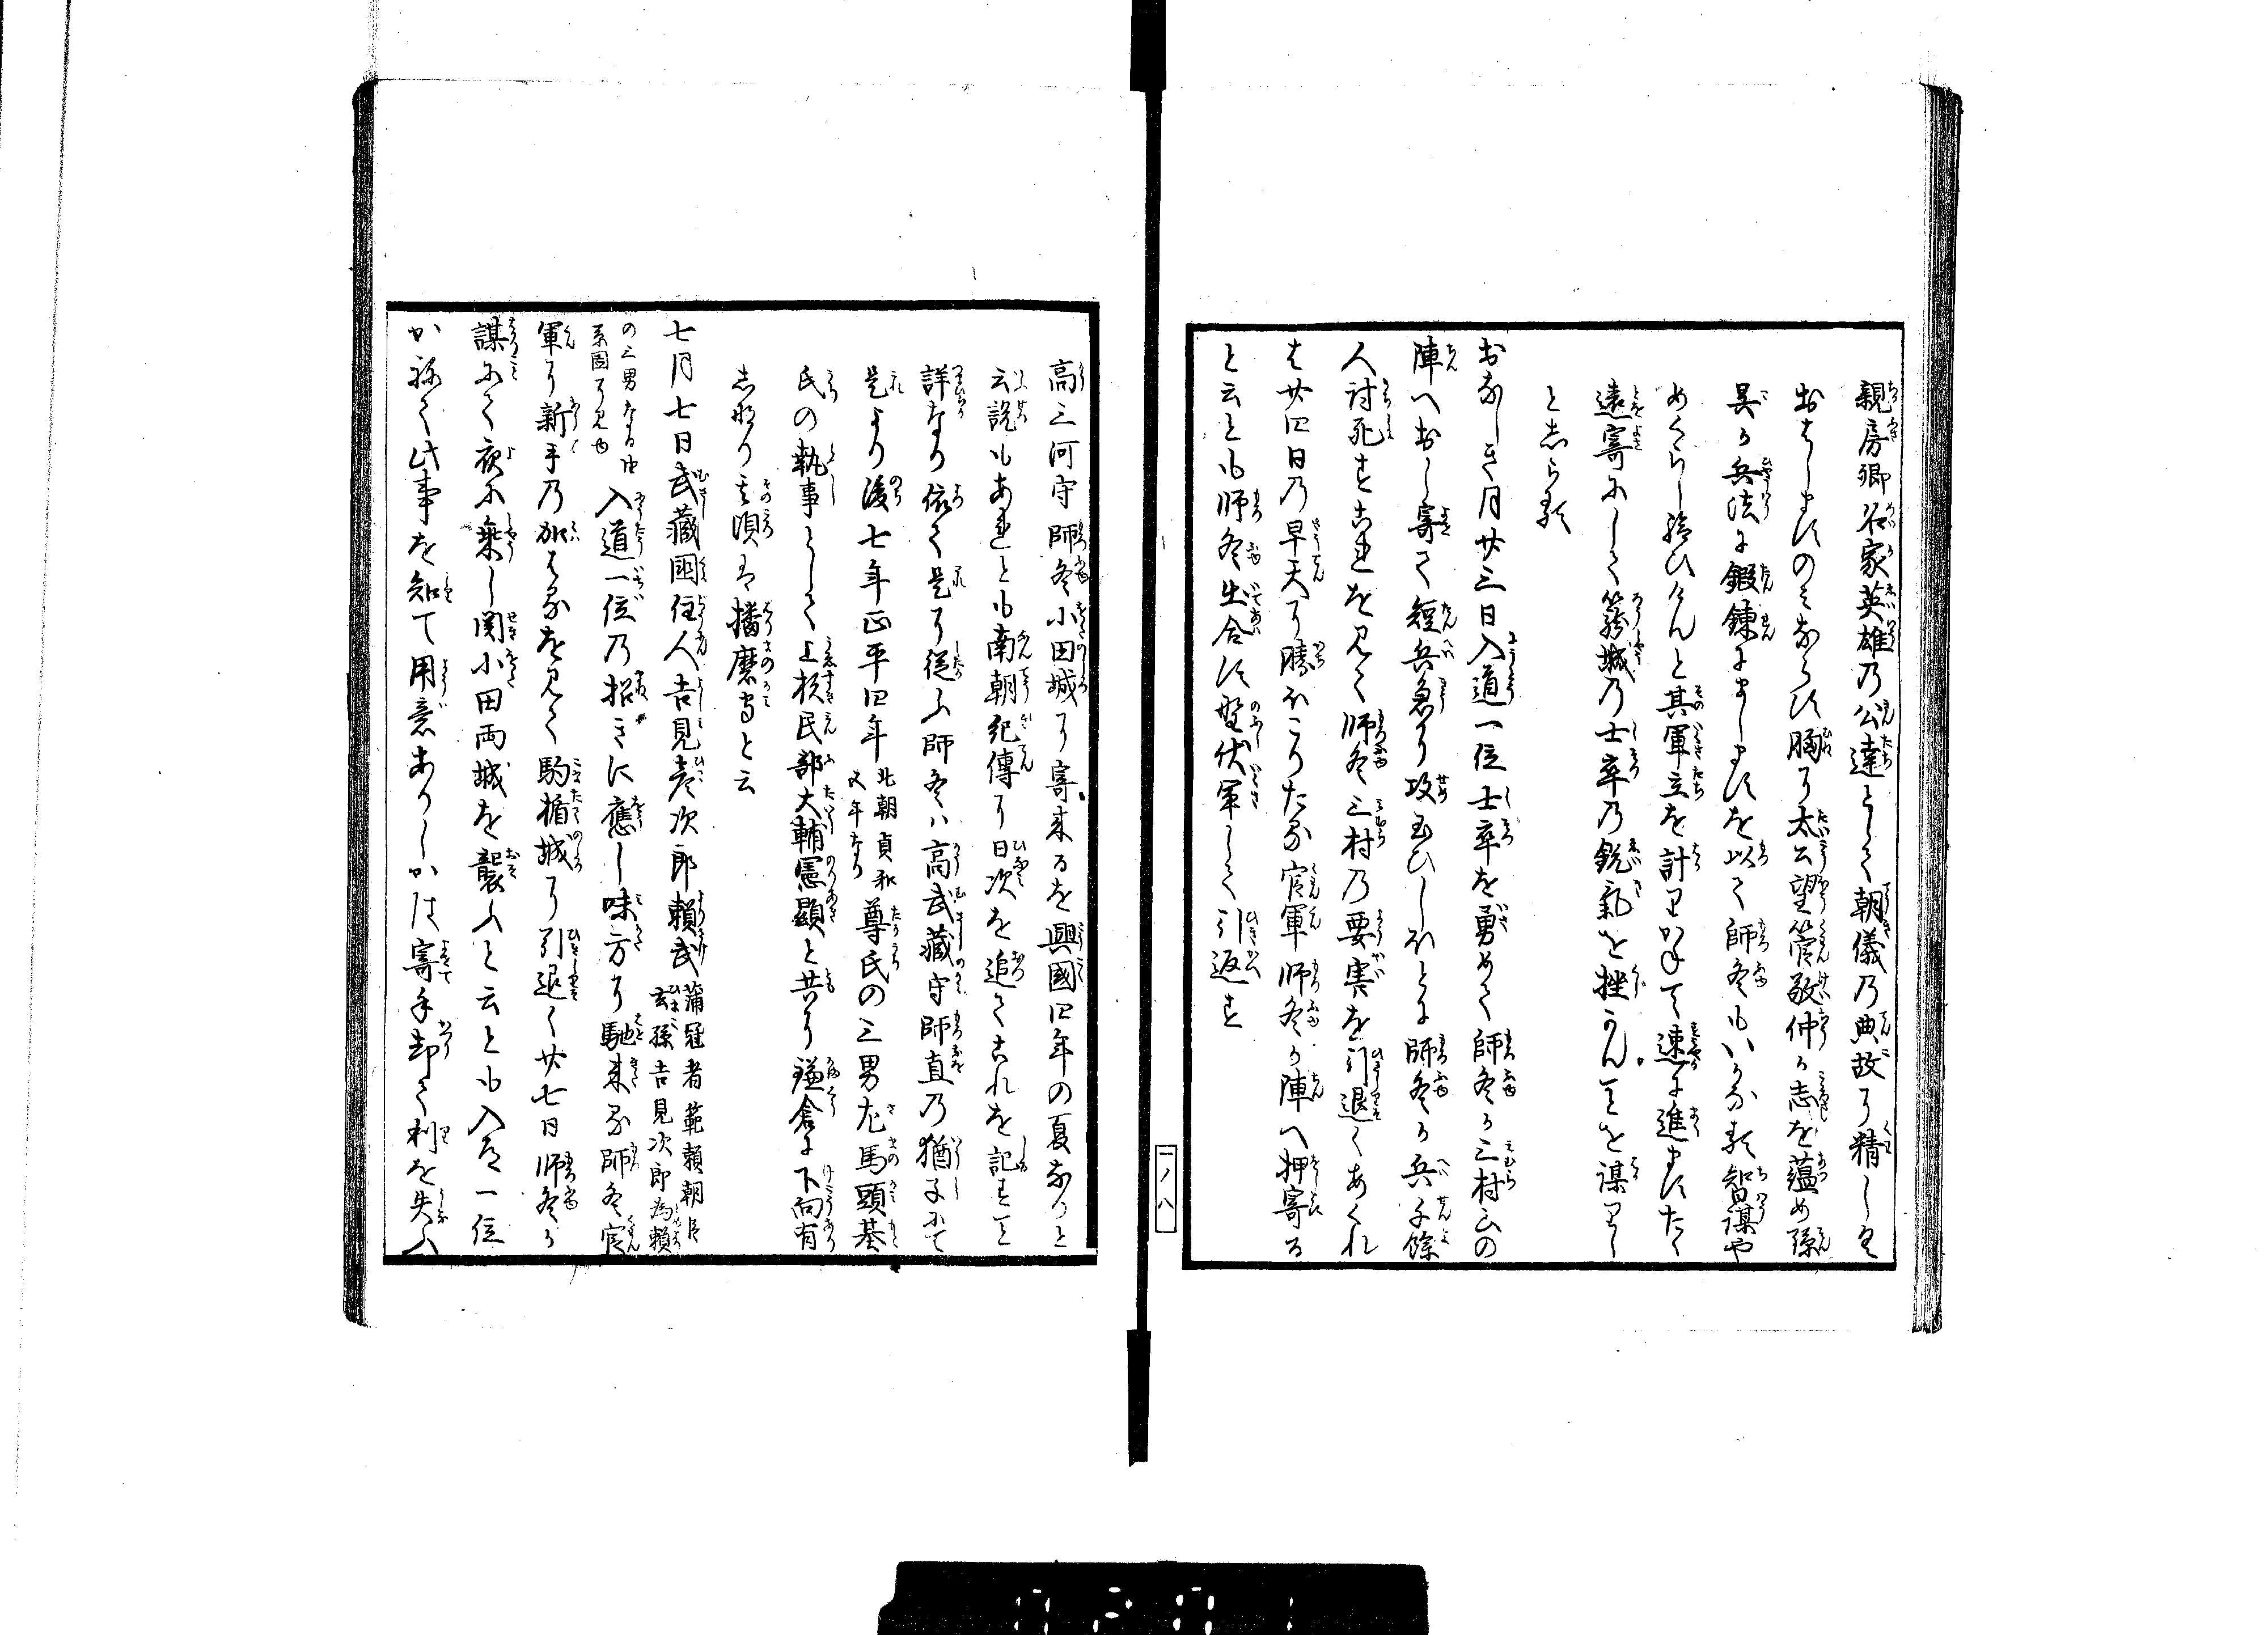 親房卿名家英雄乃公達として朝儀乃典故に精しく
おはしますのみならす胸に太公望管敬仲か志を蘊め孫
呉か兵法に鍛錬しましますを以て師冬もいかなる智謀や
めくらし給ひけんと其軍立を計りかねて速に進ますたく
遠寄にして籠城乃士卒乃鋭氣を挫かんことを謀りし
と志らる
おなしき月廿三日入道一位士卒を勇めて師冬か三村山の
陣へおし寄て短兵急に攻玉ひしほとに師冬か兵千餘
人討死すこれを見て師冬三村乃要害を引退くあくれ
は廿四日乃早天に勝ほこりたる官軍師冬か陣へ押寄る
と云とも師冬出合す野伏軍して引返す
一ノ八
高三河守師冬小田城に寄来るを興國四年の夏なりと
云説もあれとも南朝紀傳に日次を追てこれを記すこと
詳なり依て是に従ふ師冬ハ高武藏守師直乃猶子にて
是より後七年正平四年北朝貞和五年なり尊氏の三男左馬頭基
氏の執事として上杉民部大輔憲顯と共に鎌倉に下向有
志なり其頃は播磨守と云
七月七日武藏國住人吉見彦次郎頼武蒲冠者範頼朝臣玄孫吉見次郎為頼
の三男なる由系圖に見ゆ入道一位乃招きに應し味方に馳来る師冬官
軍に新手乃加はるを見て駒楯城に引退く廿七日師冬か
謀にて夜に乗し関小田両城を襲ふと云とも入道一位
かねて此事を知て用意ありしかは寄手却て利を失ふ